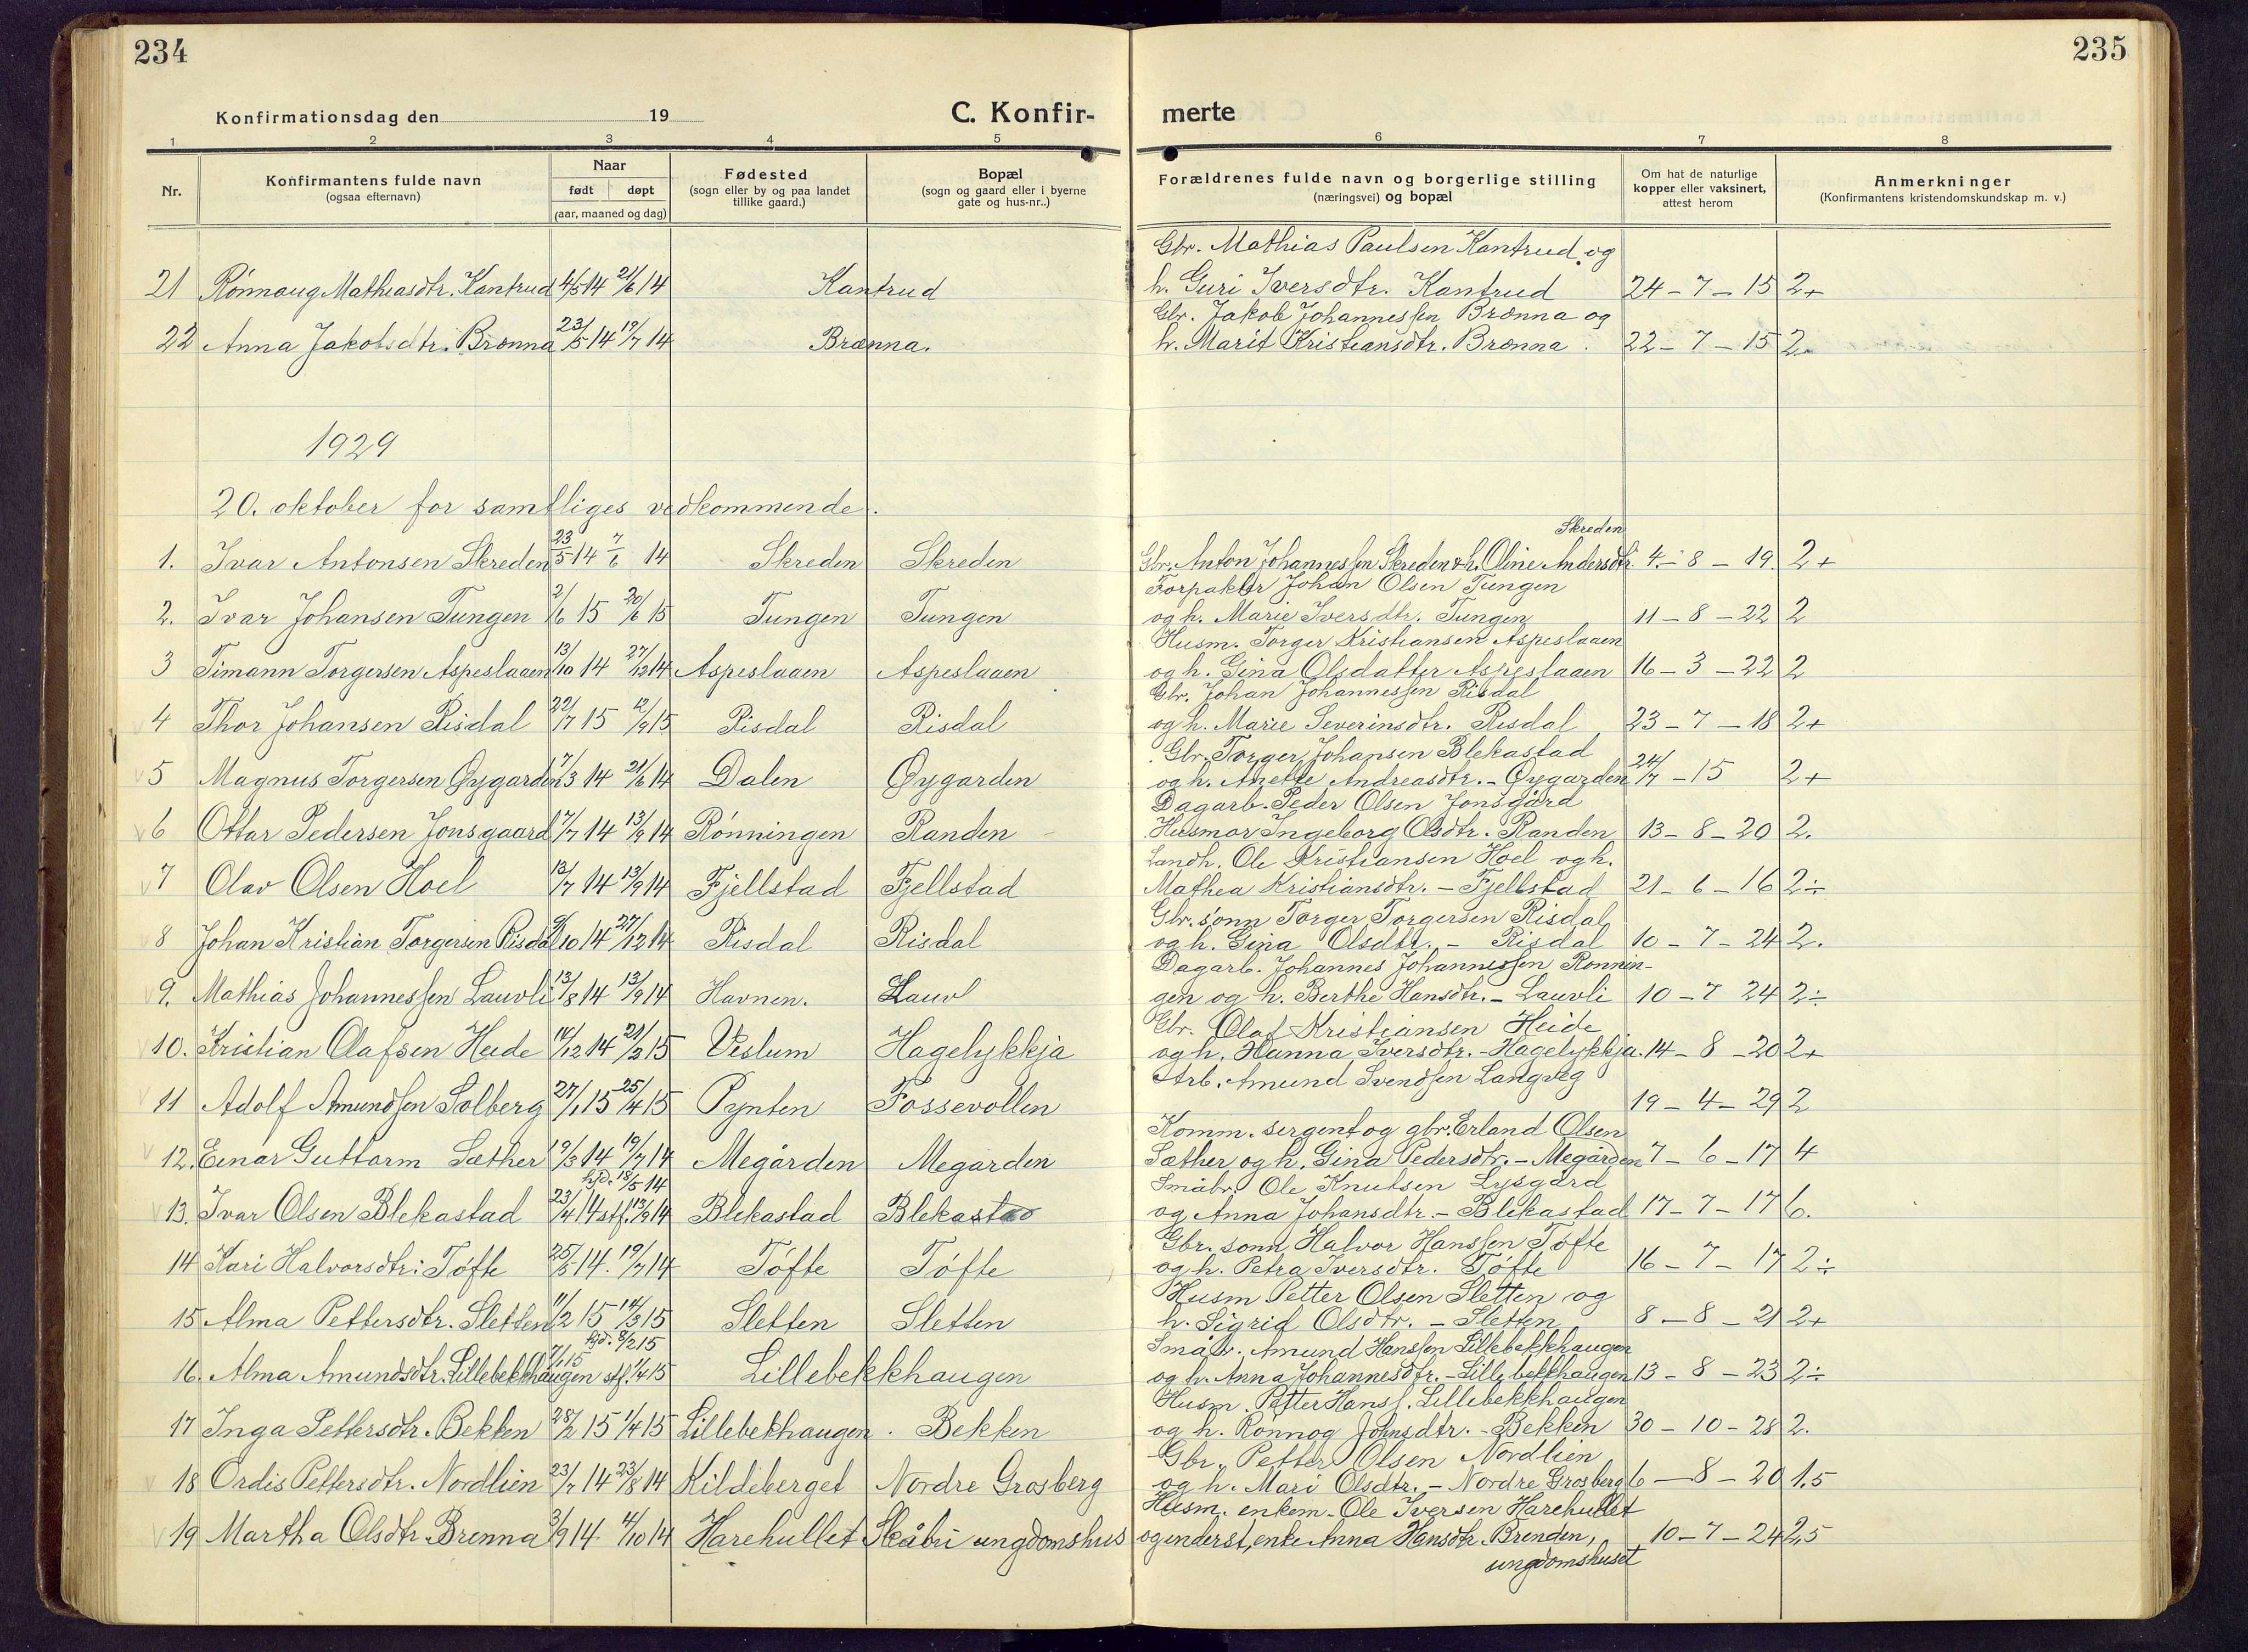 234
235
Konfirmationsdag den 19
C. Konfir-
merte
1 2 3 4 5 6 7 8
Nr.
Konfirmantens fulde navn
(ogsaa efternavn)
Naar
født døpt
(aar, maaned og dag)
Fødested
(sogn eller by og paa landet
tillike gaard.)
Bopæl
(sogn og gaard eller i byerne
gate og hus-nr..)
Forældrenes fulde navn og borgerlige stilling
(næringsvei) og bopæl
Om hat de naturlige
kopper eller vaksinert,
attest herom
Anmerkninger
(Konfirmantens kristendomskundskap m. v.)
Gbr. Mathias Paulsen Kantrud og
21 Rønnaug Mathiasdtr. Kantrud 4/5 14 21/6 14 Kantrud h. Guri Iversdtr. Kantrud 24-7-15 2+
Gbr. Jakob Johannessen Brænna og
22 Anna Jakobsdtr. Brænna 23/5 14 19/7 14 Brænna. h. Marit Kristiansdtr. Brænna. 22-7-15 2
1929
20. oktober for samtliges vedkommende.
Skreden
1. Ivar Antonsen Skreden 23/5 14 7/6 14 Skreden Skreden Gbr. Anton Johannessen Skreden & h. Oline Andersdtr. 4.-8-19. 2+
Forpakter Johan Olsen Tungen
2. Ivar Johansen Tungen 2/6 15 20/6 15 Tungen Tungen og h. Marie Iversdtr. Tungen 11-8-22 2
Husm. Torger Kristiansen Aspeslaaen
3 Timann Torgersen Aspeslaaen 13/10 14 27/12 14 Aspeslaaen Aspeslaaen og h. Gina Olsdatter Aspeslaaen 16-3-22 2
Gbr. Johan Johannessen Risdal
4 Thor Johansen Risdal 22/7 15 12/9 15 Risdal Risdal og h. Marie Severinsdtr. Risdal 23-7-18 2+
Gbr. Torger Johansen Blekastad
5 Magnus Torgersen Øygarden 7/3 14 21/6 14 Dalen Øygarden og h. Anette Andreasdtr. - Øygarden 24/7-15 2+
Dagarb. Peder Olsen Jonsgård
6 Ottar Pedersen Jonsgaard 7/7 14 13/9 14 Rønningen Randen Husmor Ingeborg Olsdtr. Randen 13-8-20 2.
Landh. Ole Kristiansen Hoel og h.
7 Olav Olsen Hoel 12/7 14 13/9 14 Fjellstad Fjellstad Mathea Kristiansdtr. - Fjellstad 21-6-16 2÷
Gbr. sønn Torger Torgersen Risdal
8 Johan Kristian Torgersen Risdal 9/10 14 27/12 14 Risdal Risdal og h. Gina Olsdtr. - Risdal 10-7-24 2.
Dagarb. Johannes Johannessen Rønnin-
9. Mathias Johannessen Lauvli 13/8 14 13/9 14 Havnen. Lauvl gen og h. Berthe Hansdtr. - Lauvli 10-7 24 2÷
Gbr. Olaf Kristiansen Heide
10. Kristian Olafsen Heide 14/12 14 21/3 15 Veslum Hagelykkja og h. Hanna Iversdtr. - Hagelykkja. 14-8-20 2+
Arb. Amund Svendsen Langveg
11 Adolf Amundsen Solberg 27/1 15 25/4 15 Pynten Fossevollen 19-4-29 2
Komm. sergent og gbr. Erland Olsen
12. Einar Guttorm Sæther 19/3 14 19/7 14 Megården Megarden Sæther og h. Gina Pedersdtr. - Megården 7-6-17 4
hjd. 18/5 14 Småbr. Ole Knutsen Lysgård
13. Ivar Olsen Blekastad 23/4 14 stf. 13/9 14 Blekastad Blekastad og Anna Johansdtr. - Blekastad 17-7-17 6.
Gbr. sønn Halvor Hanssen Tofte
14 Kari Halvorsdtr. Tøfte 25/5 14. 19/7 14 Tøfte Tøfte og h. Petra Iversdtr. Tøfte 16-7-17 2÷
Husm Petter Olsen Sletten og
15 Alma Pettersdtr. Sletten 11/2 15 14/3 15 Sletten Sletten h. Sigrid Olsdtr. - Sletten 8-8-21 2+
hjd. 8/2 15 Småbr. Amund Hanssen Lillebekkhaugen
16. Alma Amundsdtr. Lillebekkhaugen 7/1 15 stf. 1/4 15 Lillebekkhaugen og h. Anna Johannesdtr. - Lillebekkhaugen 13-8-23 2÷
Husm. Petter Hanss. Lillebekkhaugen
17 Inga Pettersdtr. Bekken 28/2 15 1/4 15 Lillebekhaugen. Bekken og h. Rønnog Johnsdtr. - Bekken 30-10-28 2.
Gbr. Petter Olsen Nordlien
18 Ordis Pettersdtr. Nordlien 23/7 14 23/8 14 Kildeberget Nordre Grosberg og h. Mari Olsdtr. - Nordre Grosberg 6-8-20 1.5
Husm. enkem. Ole Iversen Harehullet
19 Martha Olsdtr. Brenna 3/9 14 4/10 14 Harehullet Skåbu ungdomshus og inderst, enke Anna Hansdtr. Brenden, 10-7-24 2,5
ungdomshuset